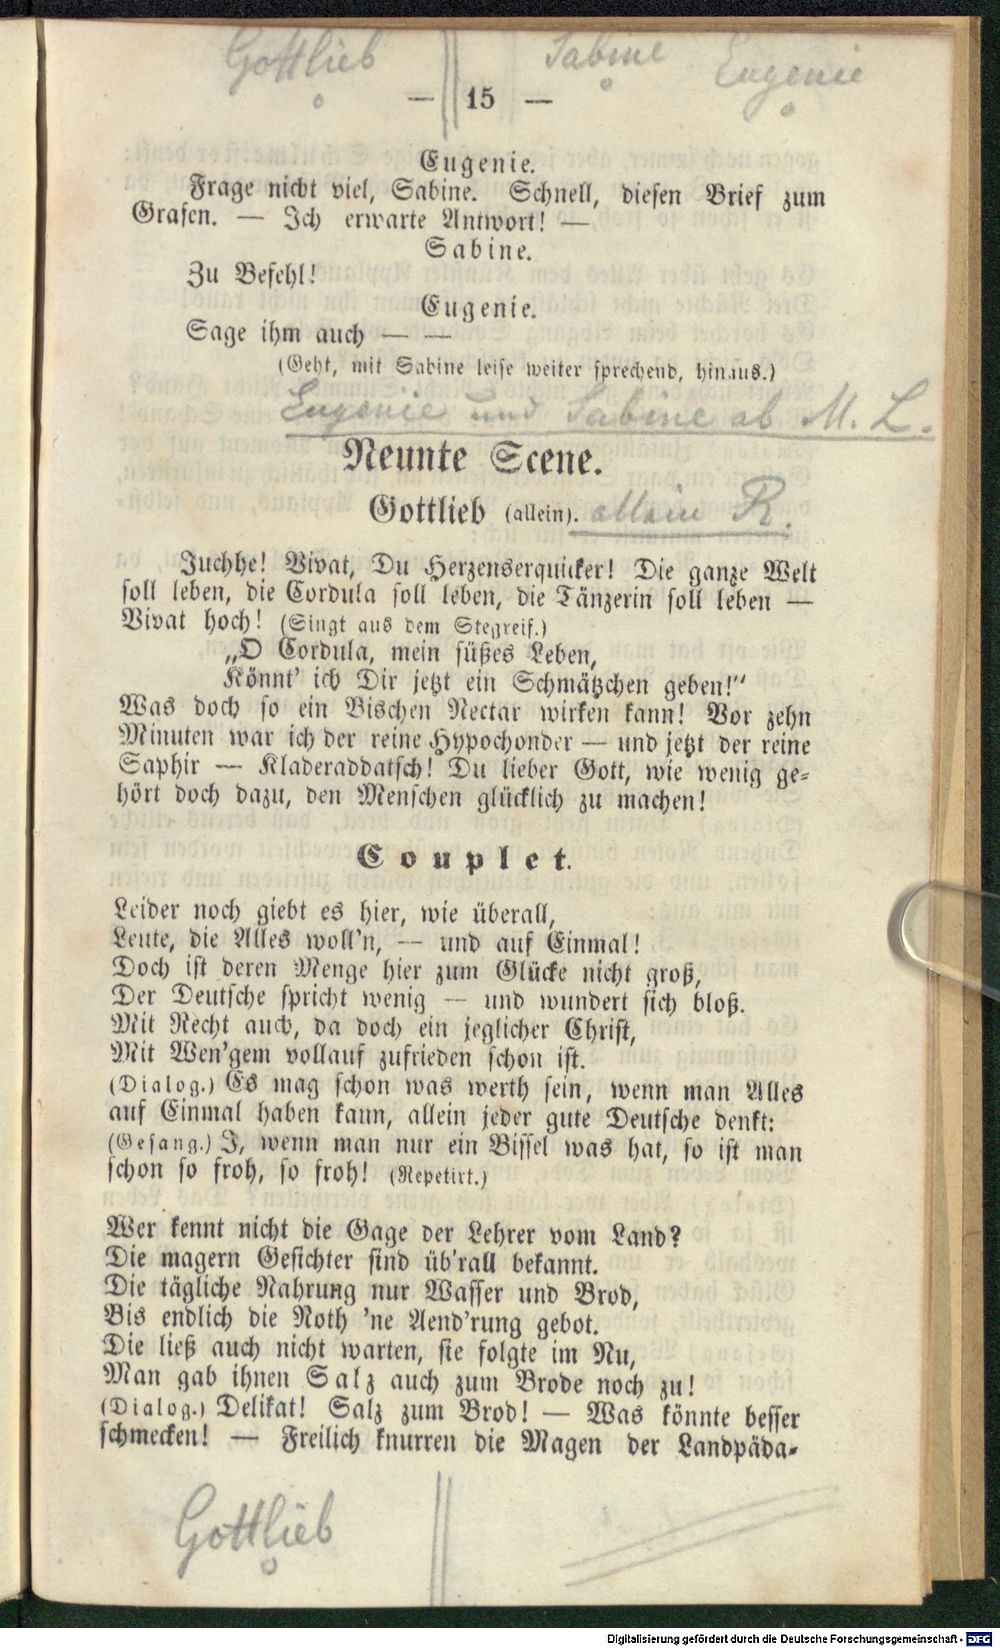 Gottlieb Sabine Eugenie
— 15 —
Eugenie.
Frage nicht viel, Sabine. Schnell, diesen Brief zum
Grafen. — Ich erwarte Antwort! —
Sabine.
Zu Befehl!
Eugenie.
Sage ihm auch — —
(Geht, mit Sabine leise weiter sprechend, hinaus.)
Eugenie und Sabine ab M. L.
Neunte Scene.
Gottlieb (allein). allein R.
Juchhe! Vivat, Du Herzenserquicker! Die ganze Welt
soll leben, die Cordula soll leben, die Tänzerin soll leben —
Vivat hoch! (Singt aus dem Stegreif.)
„O Cordula, mein süßes Leben,
Könnt' ich Dir jetzt ein Schmätzchen geben!“
Was doch so ein Bischen Nectar wirken kann! Vor zehn
Minuten war ich der reine Hypochonder — und jetzt der reine
Saphir — Kladeraddatsch! Du lieber Gott, wie wenig ge-
hört doch dazu, den Menschen glücklich zu machen!
Couplet.
Leider noch giebt es hier, wie überall,
Leute, die Alles woll'n, — und auf Einmal!
Doch ist deren Menge hier zum Glücke nicht groß,
Der Deutsche spricht wenig — und wundert sich bloß.
Mit Recht auch, da doch ein jeglicher Christ,
Mit Wen'gem vollauf zufrieden schon ist.
(Dialog.) Es mag schon was werth sein, wenn man Alles
auf Einmal haben kann, allein jeder gute Deutsche denkt:
(Gesang.) J, wenn man nur ein Bissel was hat, so ist man
schon so froh, so froh! (Repetirt.)
Wer kennt nicht die Gage der Lehrer vom Land?
Die magern Gesichter sind üb'rall bekannt.
Die tägliche Nahrung nur Wasser und Brod,
Bis endlich die Noth 'ne Aend'rung gebot.
Die ließ auch nicht warten, sie folgte im Nu,
Man gab ihnen Salz auch zum Brode noch zu!
(Dialog.) Delikat! Salz zum Brod! — Was könnte besser
schmecken! — Freilich knurren die Magen der Landpäda-
Gottlieb
Digitalisierung gefördert durch die Deutsche Forschungsgemeinschaft - DFG